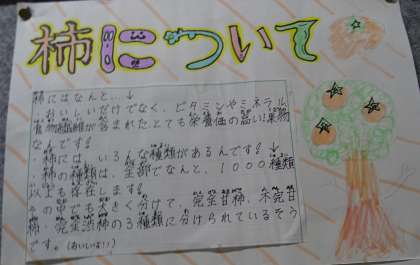 柿について
柿にはなんと…↓
・おいしいだけでなく、ビタミンやミネラル、
食物繊維が含まれたとても栄養価の高い果物
なんです!
・柿には、いろんな種類があるんです!↓
・柿の種類は、全部でなんと、1000種類
以上も存在します!
その中でも大きく分けて、完全甘柿、不完全甘
柿、完全渋柿の3種類に分けられているそう
です。(おいしい!!)